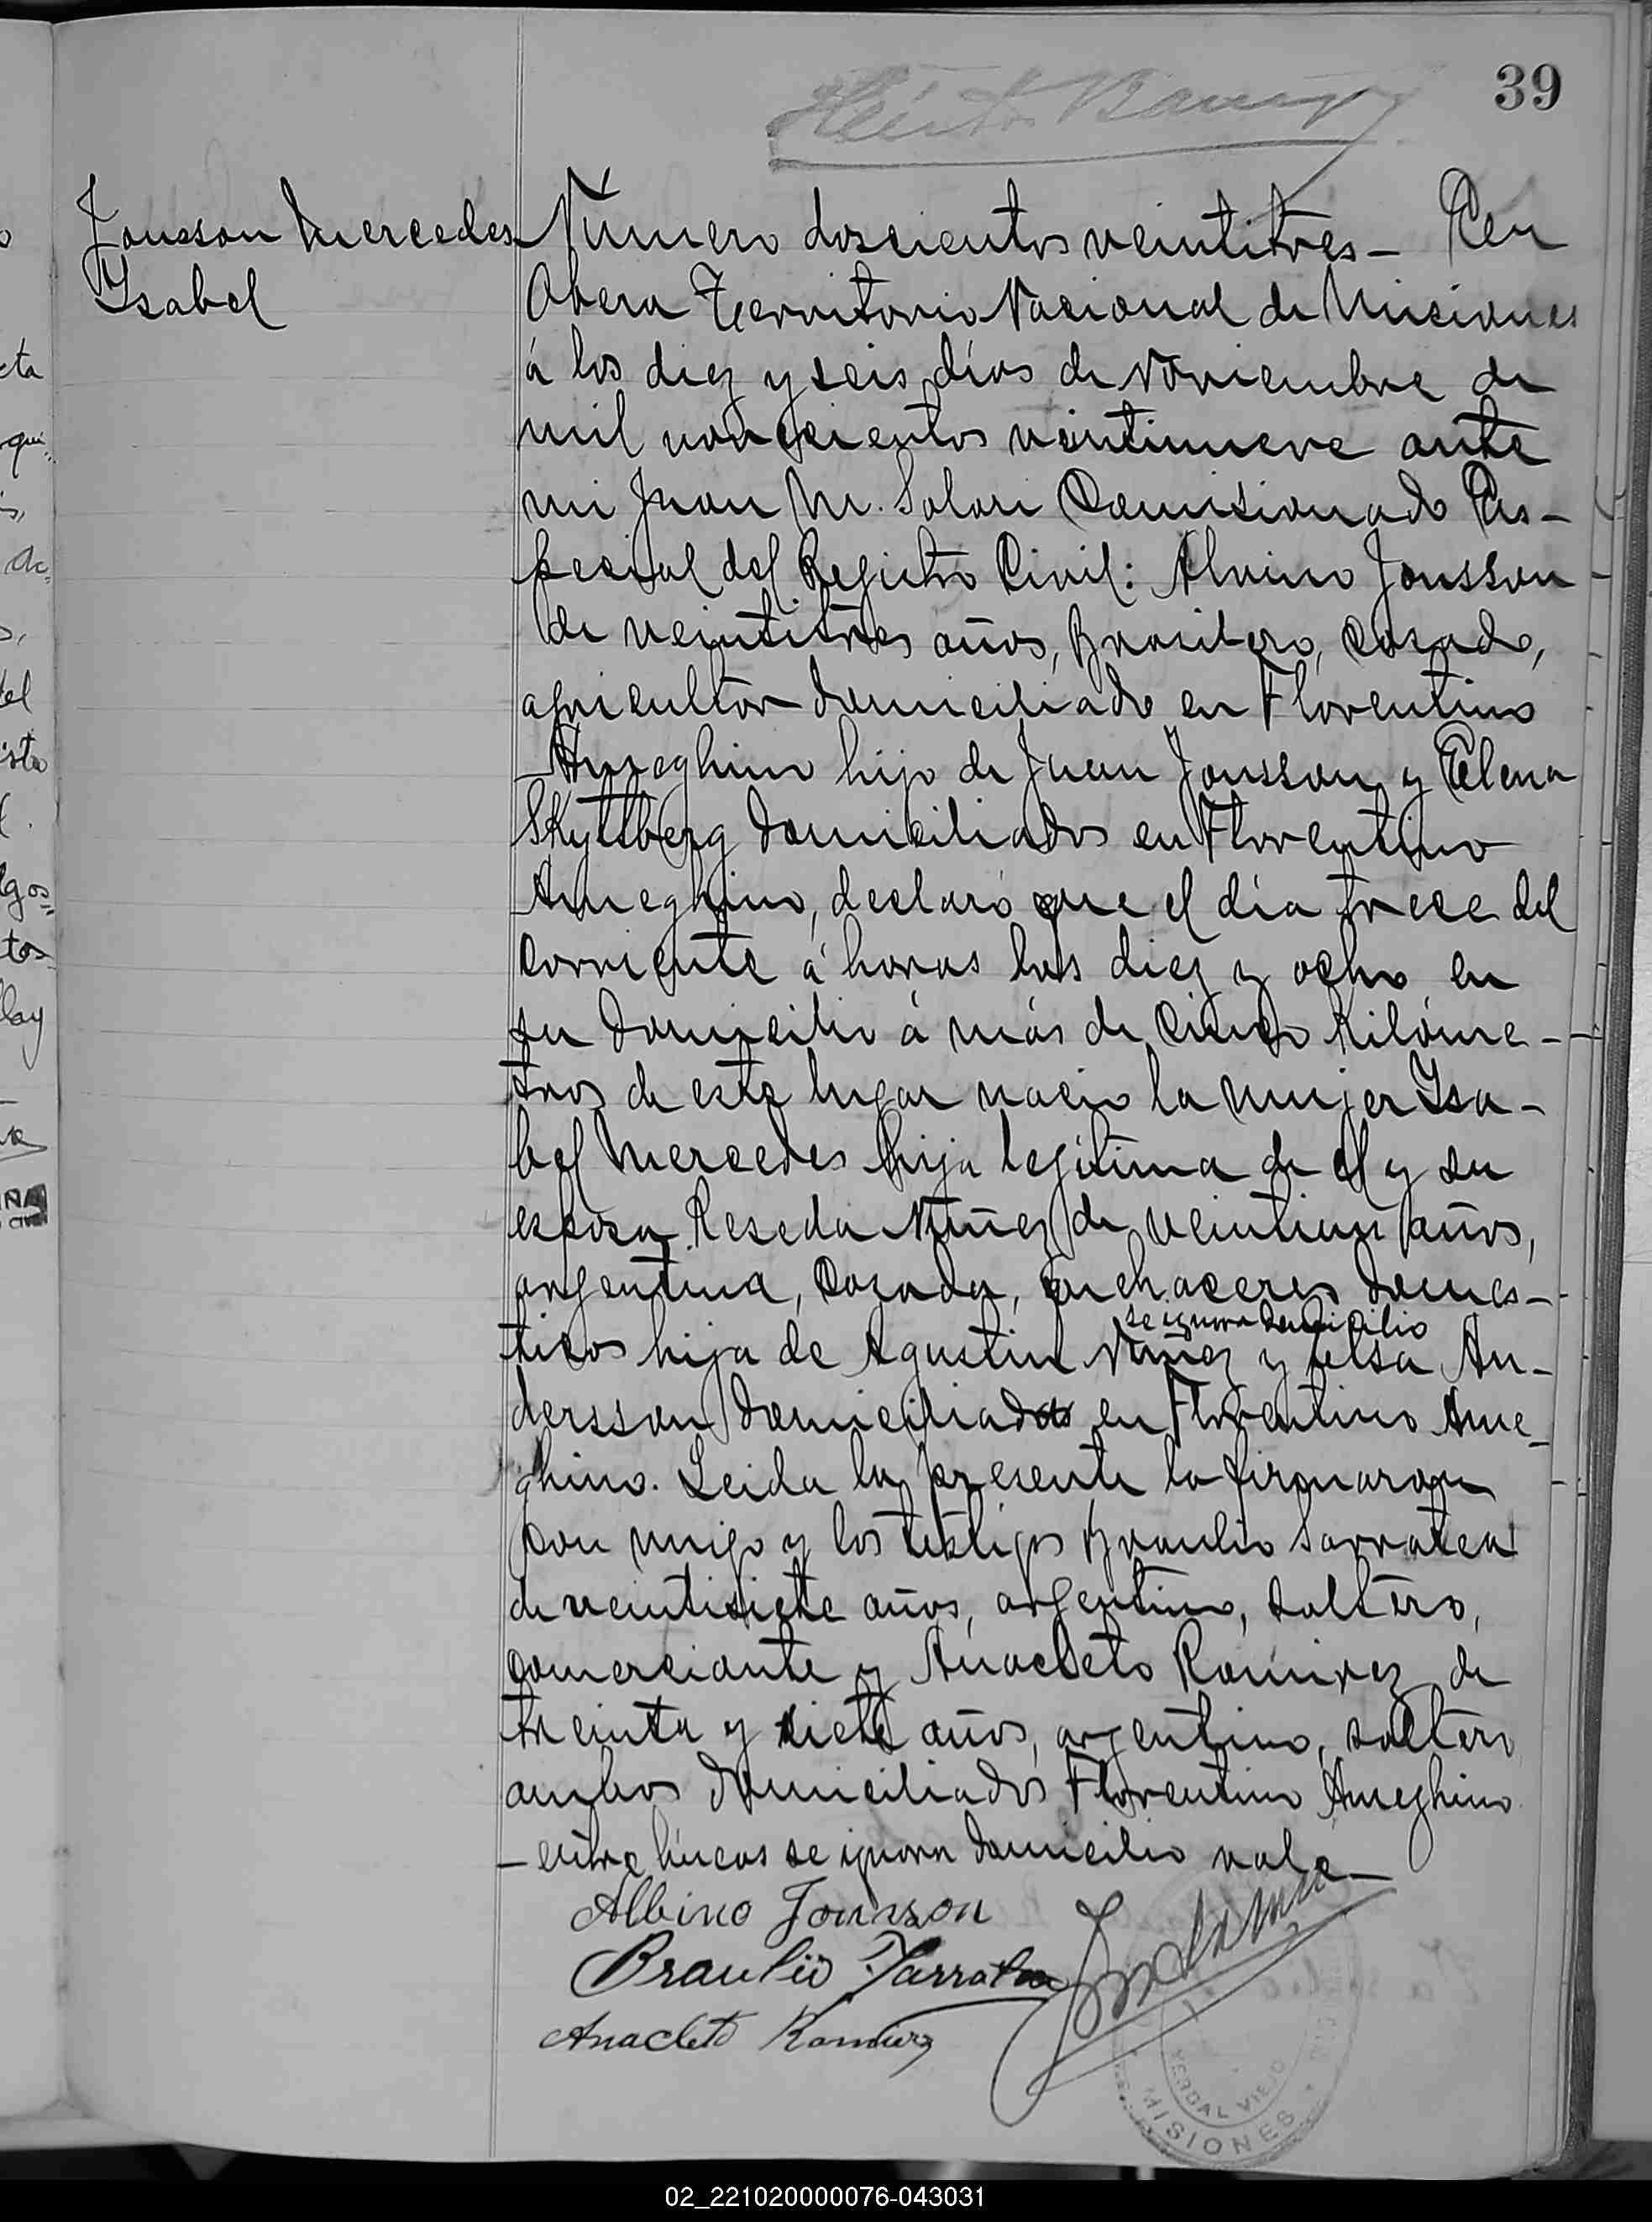 39
Jousson Mercedes
Ysabel
Número doscientos veintitres - En
Obera Territorio Nacional de Misiones
á los diez y seis días de Noviembre de
mil novecientos veintinueve ante
mi Juan M. Solari Comisionado Es-
pecial del Registro Civil: Alvino Jousson
de veintitres años, Brasilero, Casado,
agricultor domiciliado en Florentino
Ameghino hijo de Juan Jousson y Elena
Skyttberg domiciliados en Florentino
Ameghino, declaró que el día trece del
corriente á horas las diez y ocho en
su domicilio á más de cinco Kilóme-
tros de este lugar nacio la mujer Ysa-
bel Mercedes hija legítima de el y su
esposa Reseda Nuñez de veintiun años,
argentina, Casada, quehaceres domes-
se ignora domicilio
ticos hija de Agustin Nuñez y Elsa An-
dersson domiciliados en Florentino Ame-
ghino. Leida la presente la firmaron
con migo y los testigos Braulio Sarratea
de veintisiete años, argentino, soltero,
comerciante y Anacleto Ramirez de
treinta y siete años, argentino, soltero
ambos domiciliados Florentino Ameghino
- entre líneas se ignora domicilio vale -
Albino Jousson
Braulio Sarratea
Anacleto Ramirez
YERBAL VIEJO
MISIONES
02_221020000076-043031